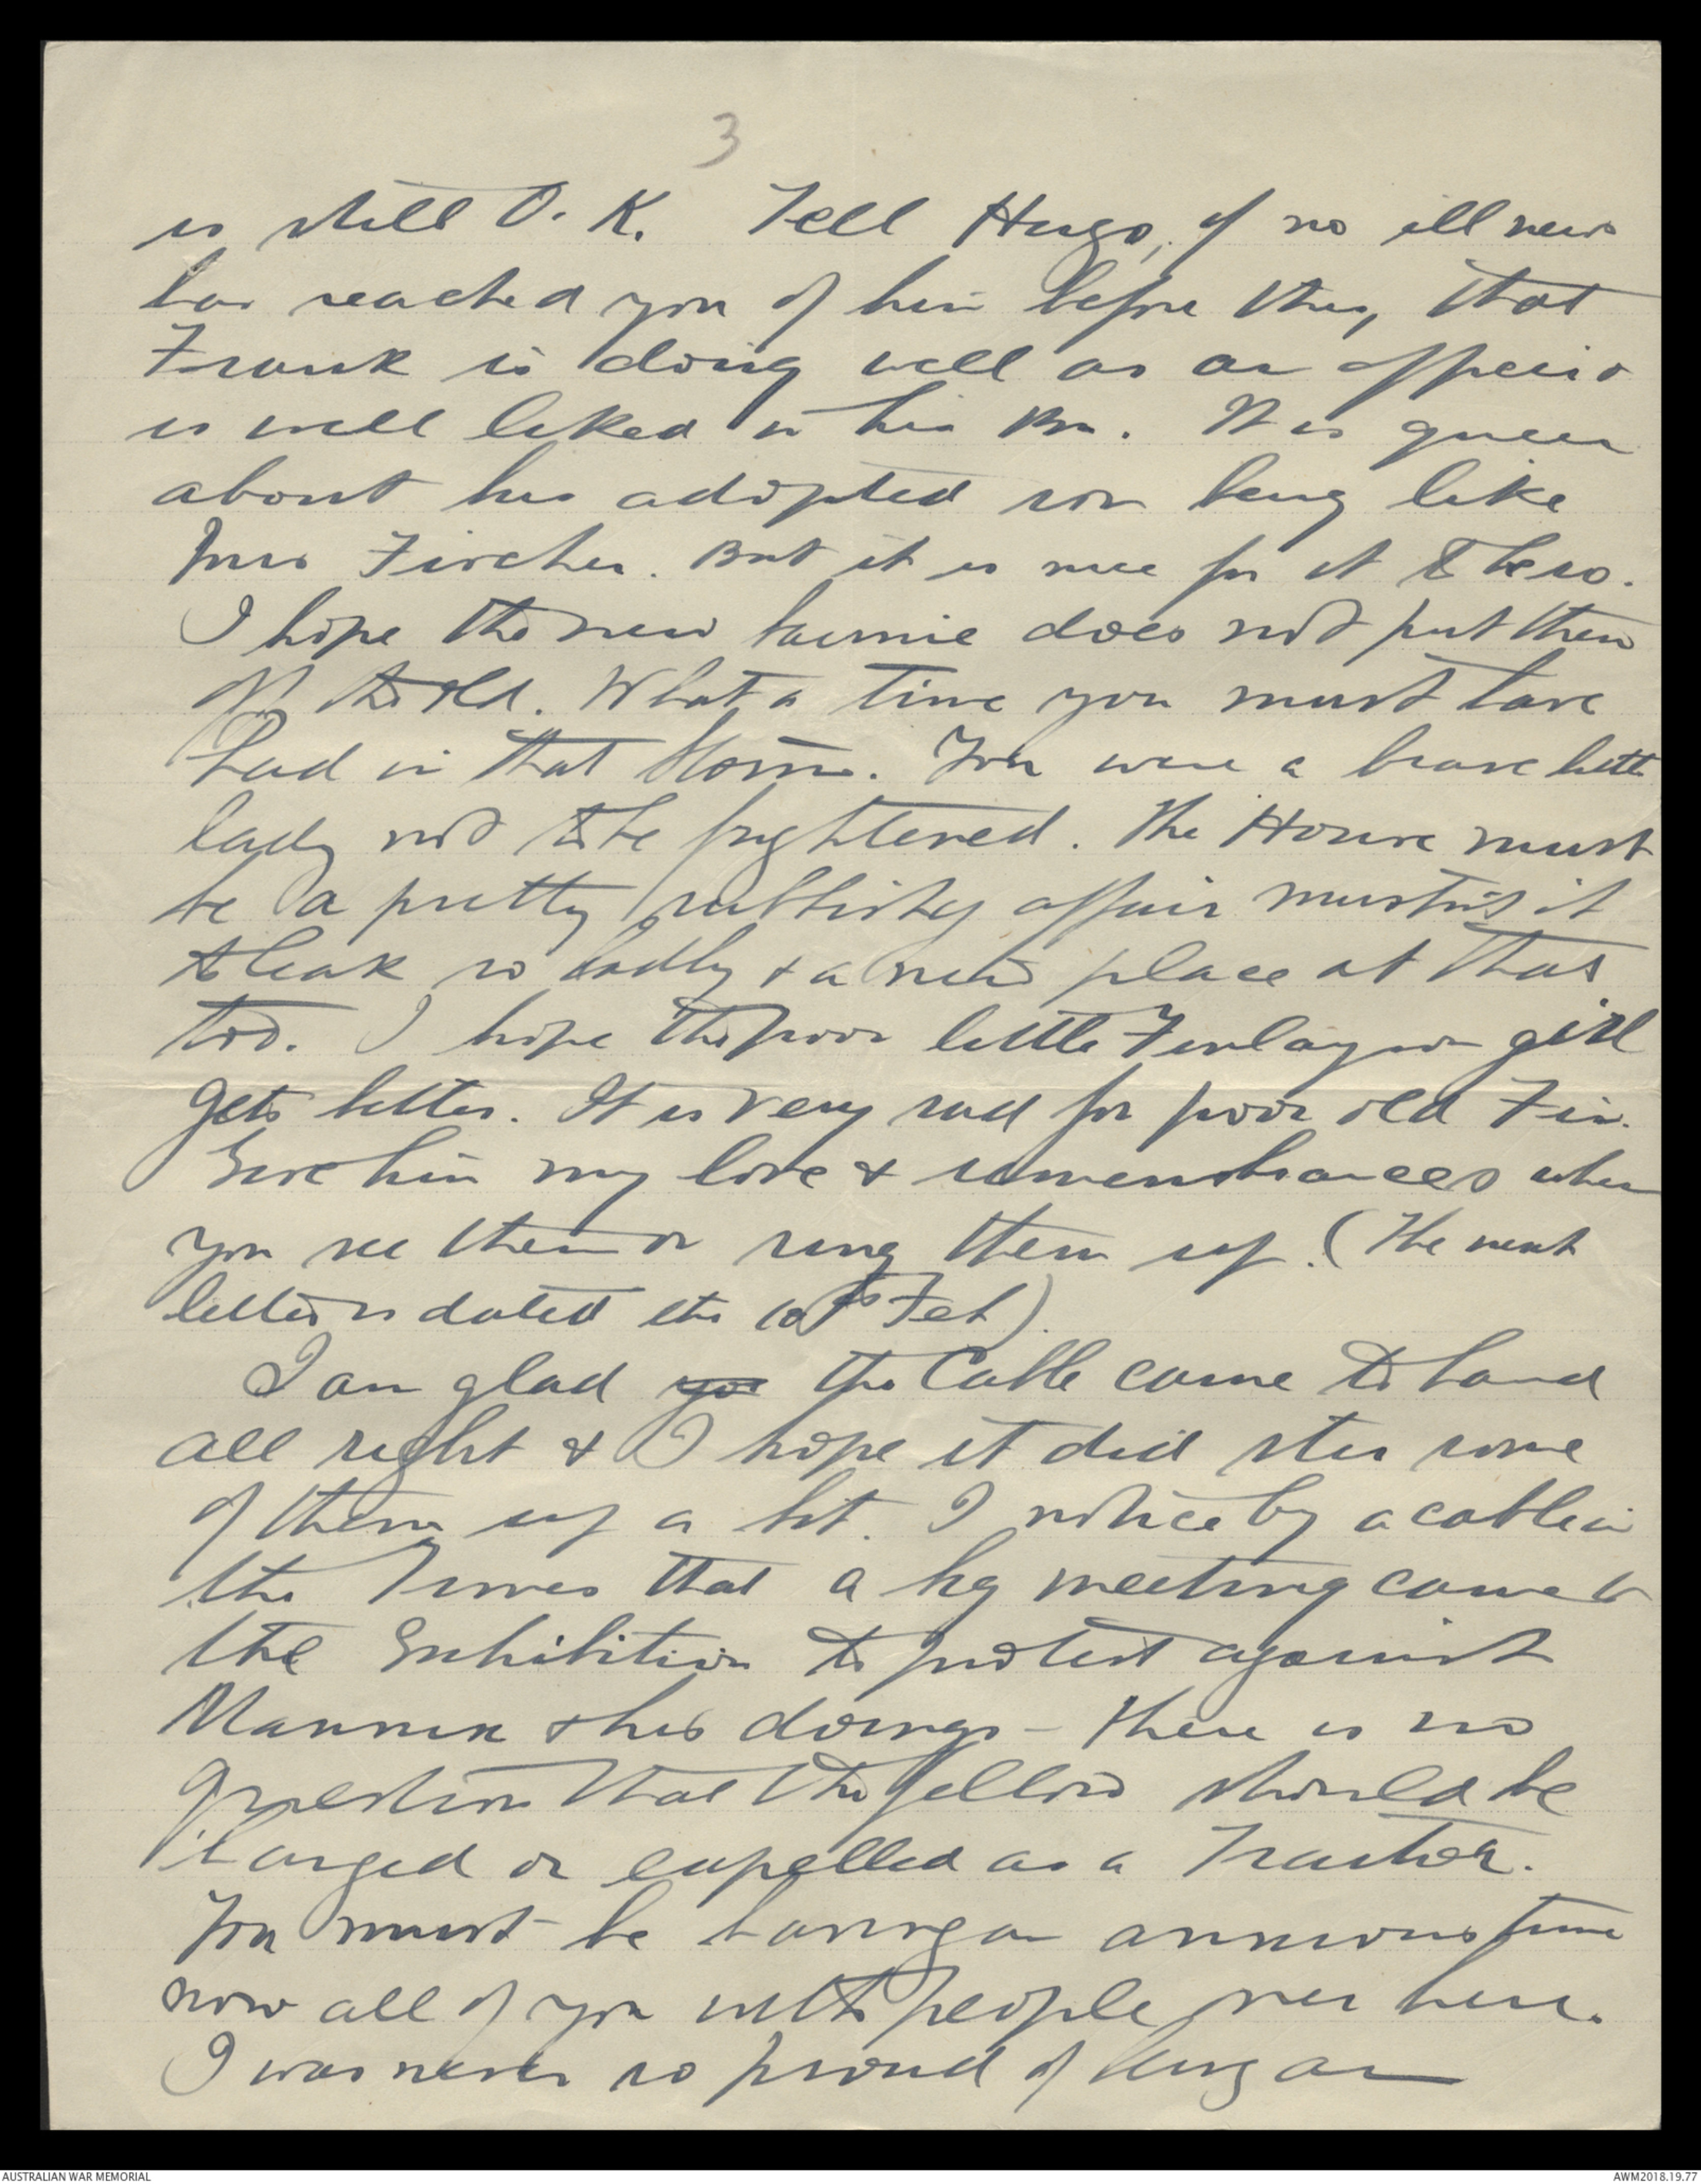 3
is still O. K. Tell Hugo, if no ill news
has reached you of him before this, that
Frank is doing well as an officer &
is well liked in his Bn. It is queer
about his adopted son being like
Mrs Fircher. But it is nice for it to be so.
I hope the new bairnie does not put them
off the old. What a time you must have
had in that storm. You were a brave little
lady not to be frightened. The House must
be a pretty rubbishy affair mustn't it
to leak so badly & a new place at that
too. I hope the poor little Finlayson girl
gets better. It is very sad for poor old Fin.
Give him my love & remembrances when
you see them or ring them up. (The next
letter is dated the 10th Feb).
I am glad you the Cable came to hand
all right & I hope it did stir some
of them up a bit. I notice by a cable in
the Times that a big meeting came to
the Exhibition to protest against
Mannix & his doings - there is no
question that the fellow should be
hanged or expelled as a Traitor.
You must be having an anxious time
now all of you with people over here.
I was never so proud of being an
AUSTRALIAN WAR MEMORIAL
AWM2018.19.77